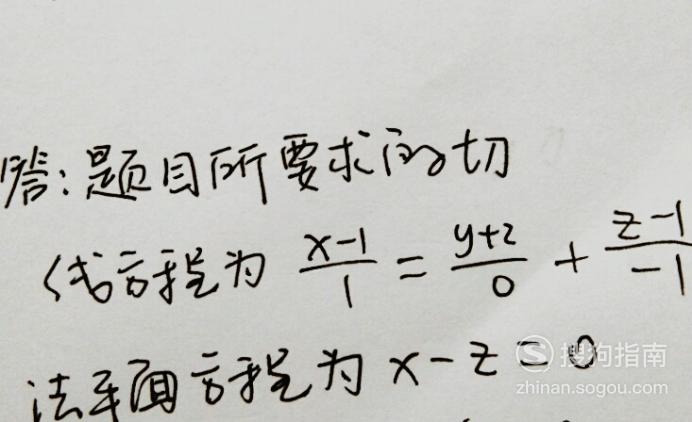 答:题目所要求的切
线方程为 x-1/1 = y+2/0 + z-1/-1
法平面方程为 x-z=0
搜狗指南
zhinan.sogou.com